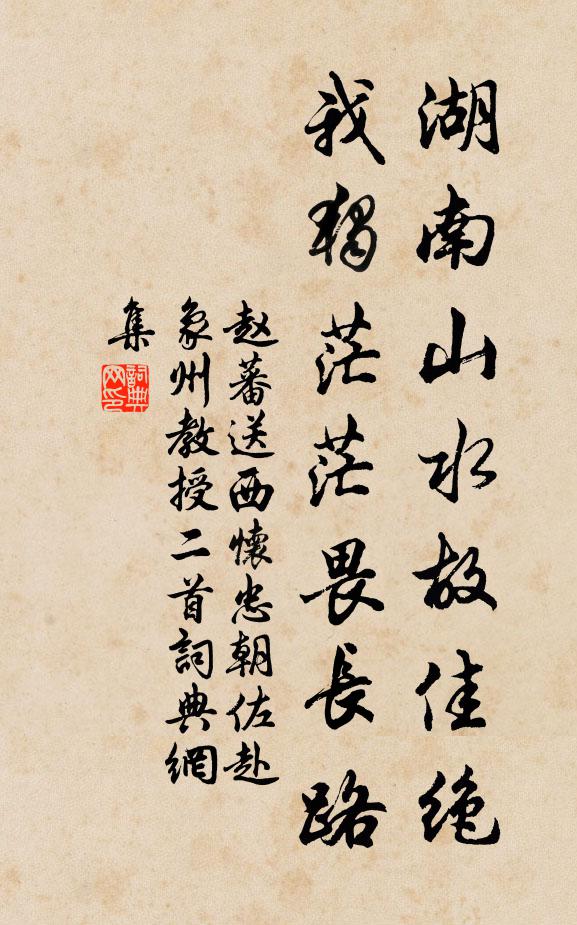 湖南山水故佳绝
我獨茫茫畏長路
赵蕃送西懷忠朝佐赴
象州教授二首詞典網
集
詞典網印